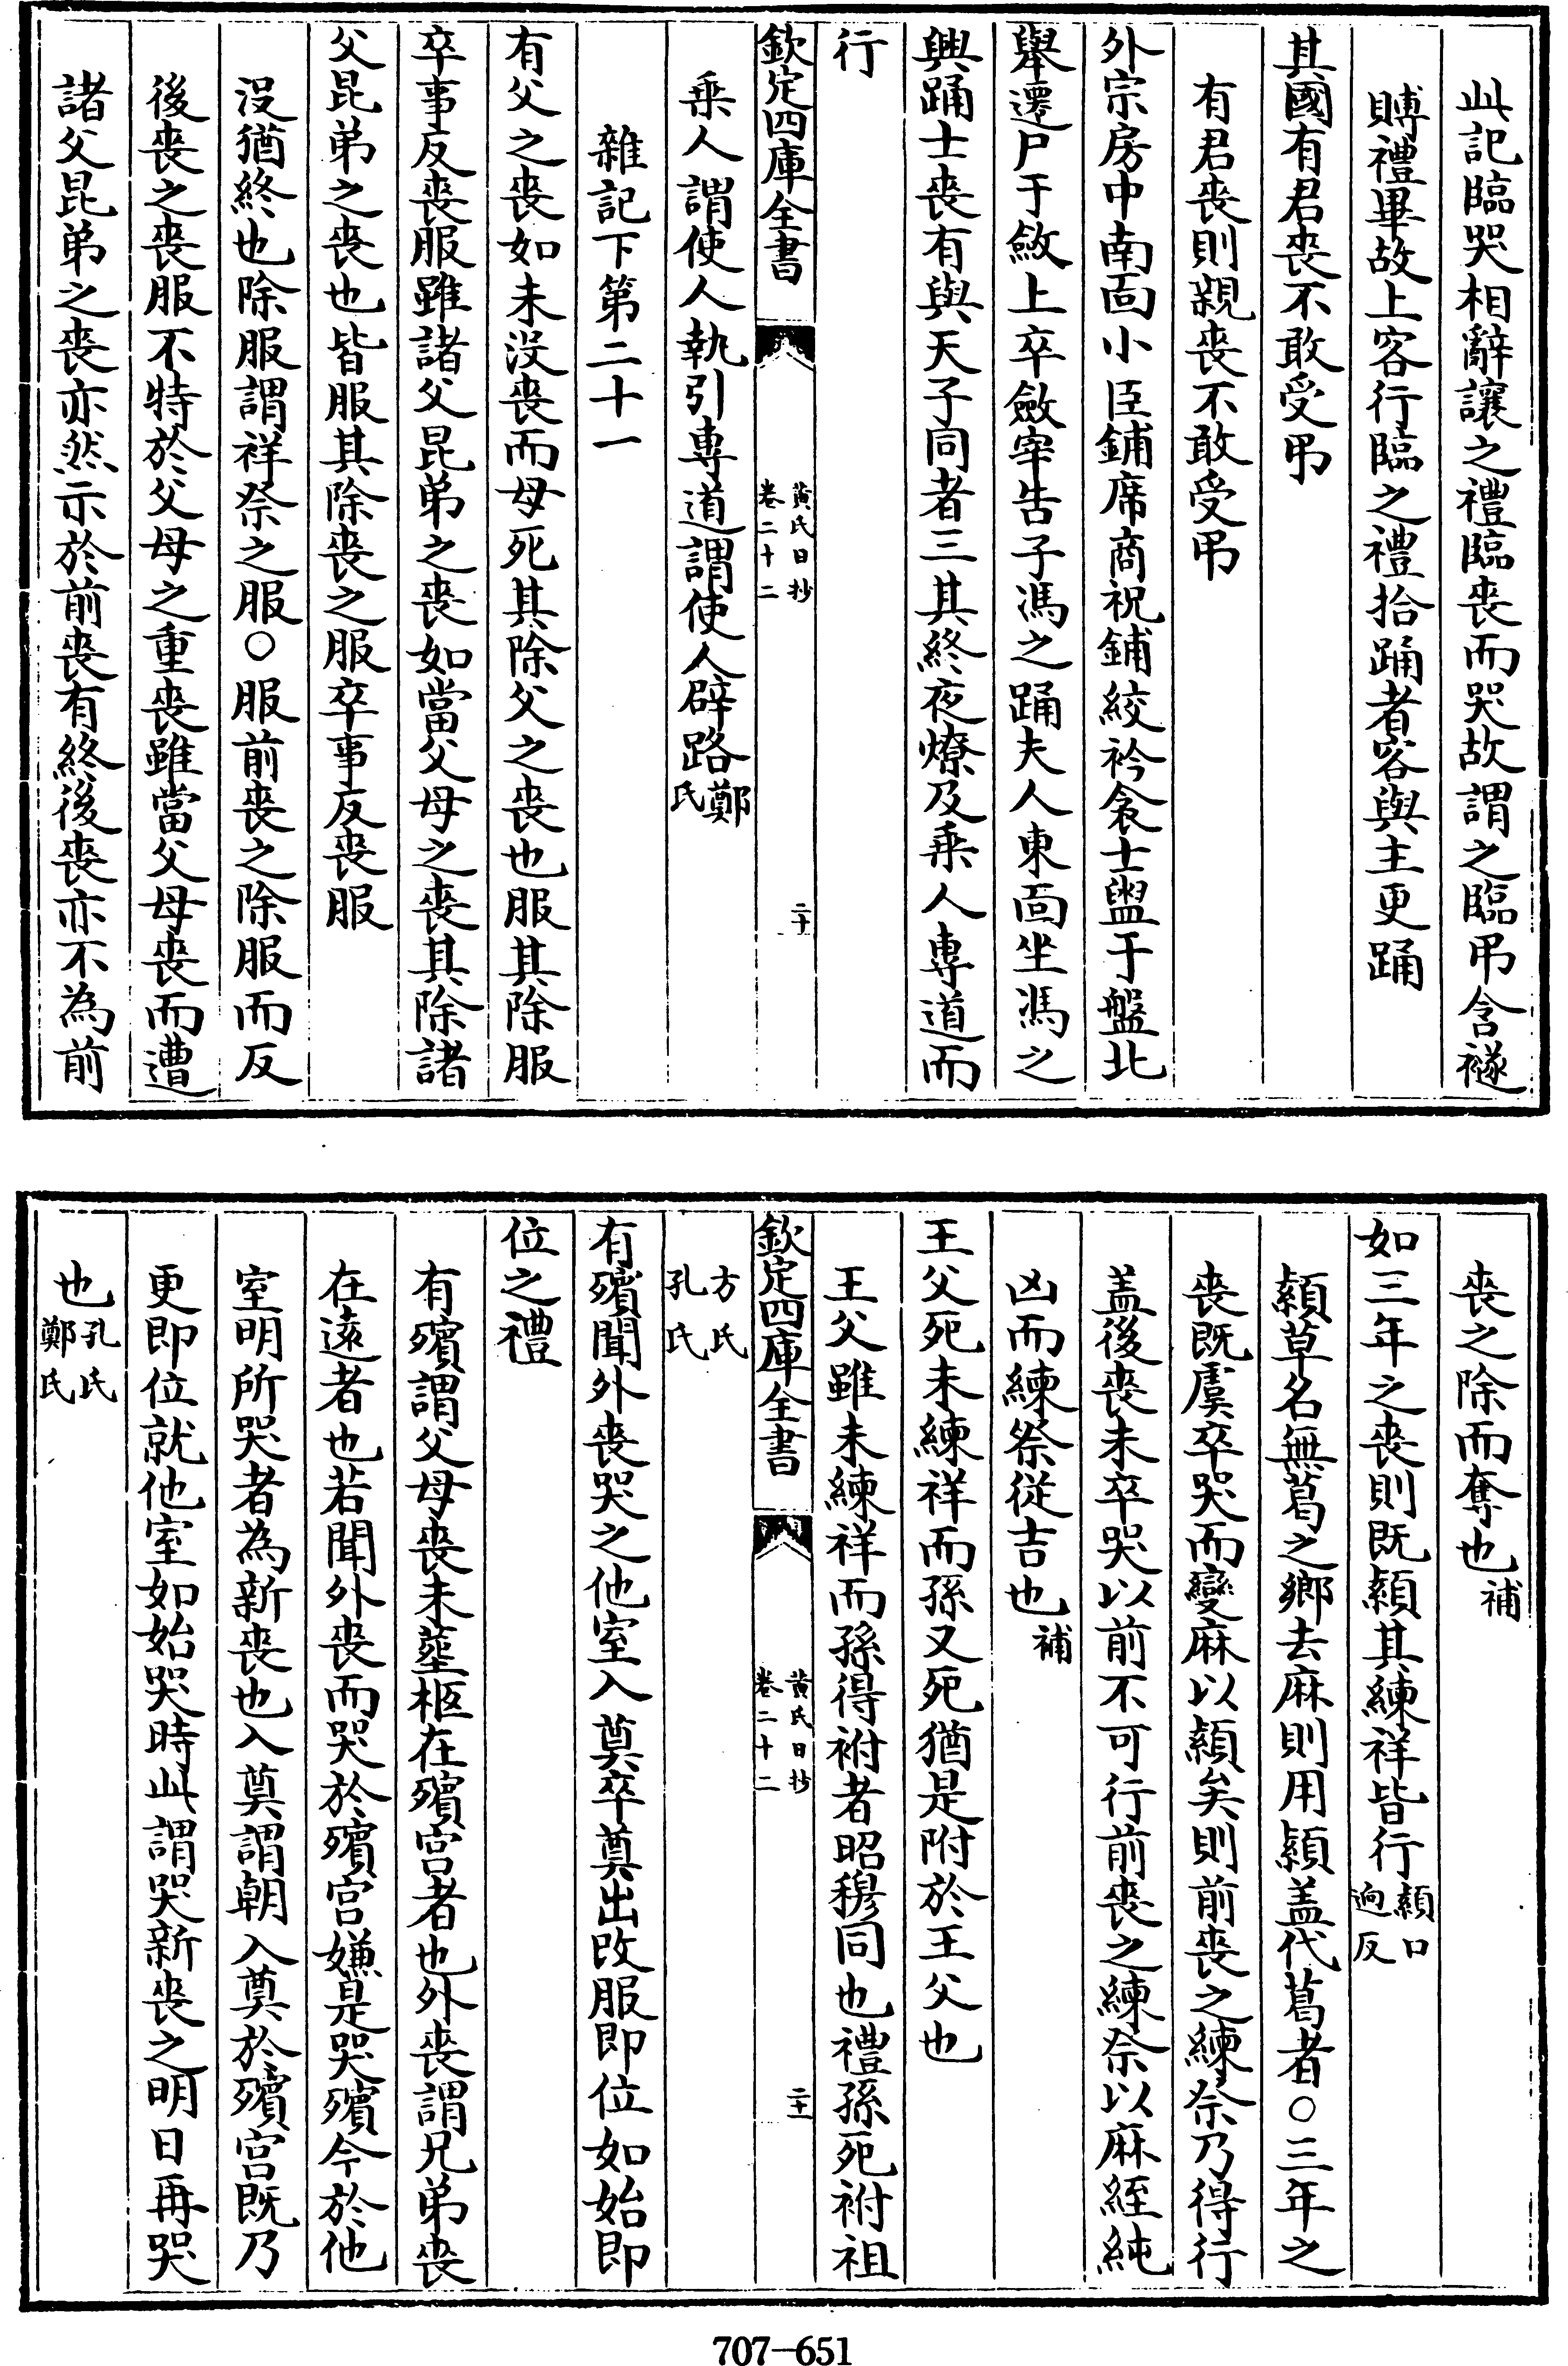 此記臨哭相辭讓之禮臨喪而哭故謂之臨弔含襚
賻禮畢故上客行臨之禮拾踊者客與主更踊
其國有君喪不敢受弔
有君喪則親喪不敢受弔
外宗房中南面小臣鋪席商祝鋪絞衿衾士盥于盤北
舉遷尸于斂上卒斂宰告子馮之踊夫人東面坐馮之
興踊士喪有與天子同者三其終夜燎及乗人専道而
行
欽定四庫全書
黄氏日抄
卷二十二
二十
乗人謂使人執引専道謂使人辟路鄭氏
雜記下第二十一
有父之喪如未沒喪而母死其除父之喪也服其除服
卒事反喪服雖諸父昆弟之喪如當父母之喪其除諸
父昆弟之喪也皆服其除喪之服卒事反喪服
沒猶終也除服謂祥祭之服○服前喪之除服而反
後喪之喪服不特於父母之重喪雖當父母喪而遭
諸父昆弟之喪亦然示於前喪有終後喪亦不為前
喪之除而奪也補
如三年之喪則既顈其練祥皆行顈口迥反
顈草名無葛之鄉去麻則用顈盖代葛者○三年之
喪既虞卒哭而變麻以顈矣則前喪之練祭乃得行
盖後喪未卒哭以前不可行前喪之練祭以麻絰純
凶而練祭從吉也補
王父死未練祥而孫又死猶是附於王父也
王父雖未練祥而孫得祔者昭穆同也禮孫死祔祖
欽定四庫全書
黄氏日抄
卷二十二
二十一
方氏
孔氏
有殯聞外喪哭之他室入奠卒奠出改服即位如始即
位之禮
有殯謂父母喪未塟柩在殯宫者也外喪謂兄弟喪
在遠者也若聞外喪而哭於殯宫嫌是哭殯今於他
室明所哭者為新喪也入奠謂朝入奠於殯宫既乃
更即位就他室如始哭時此謂哭新喪之明日再哭
也孔氏鄭氏
707-651